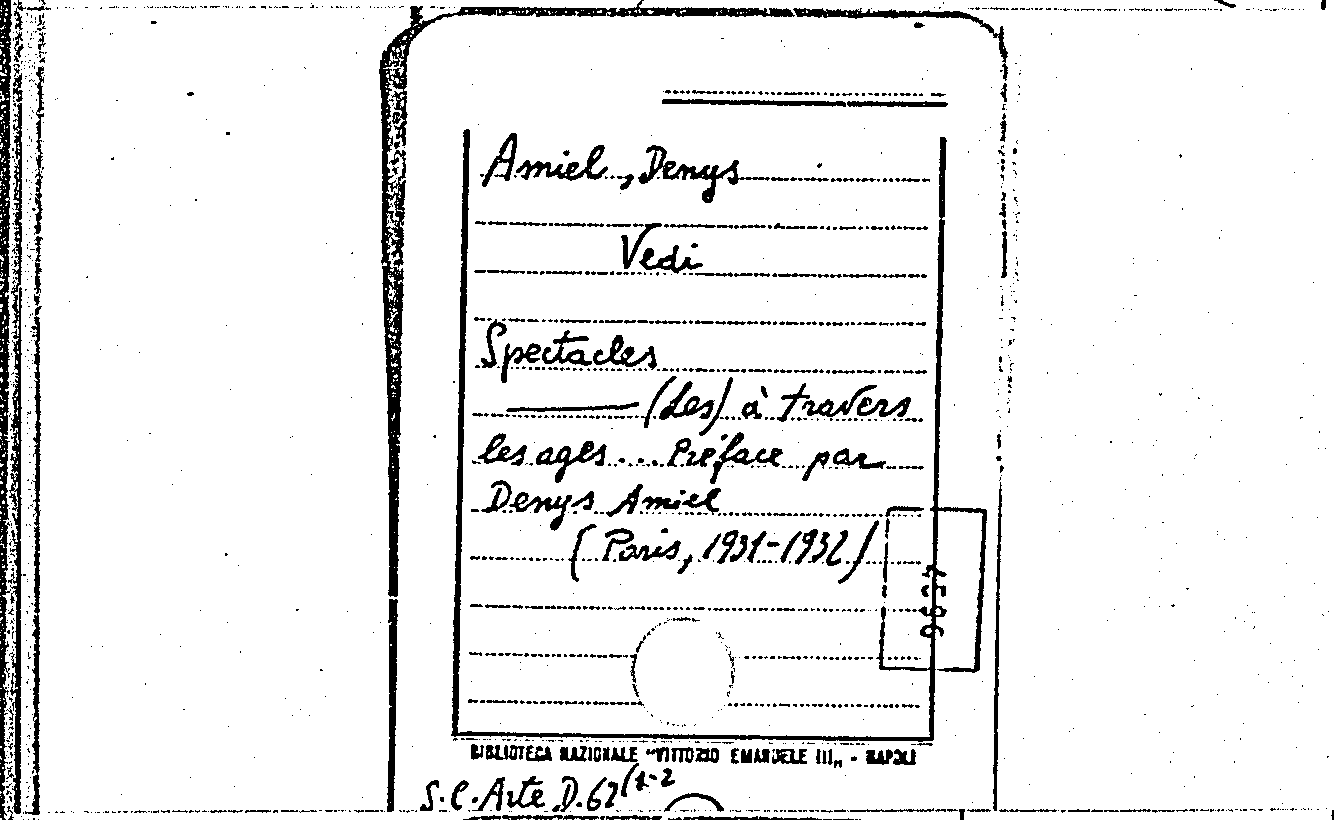 Amiel, Denys
Vedi
Spectacles
——— (Les) à travers
les ages... Préface par
Denys Amiel
(Paris, 1931-1932)
BIBLIOTECA NAZIONALE "VITTORIO EMANUELE III„ - NAPOLI
S.C. Arte D.62 (1-2